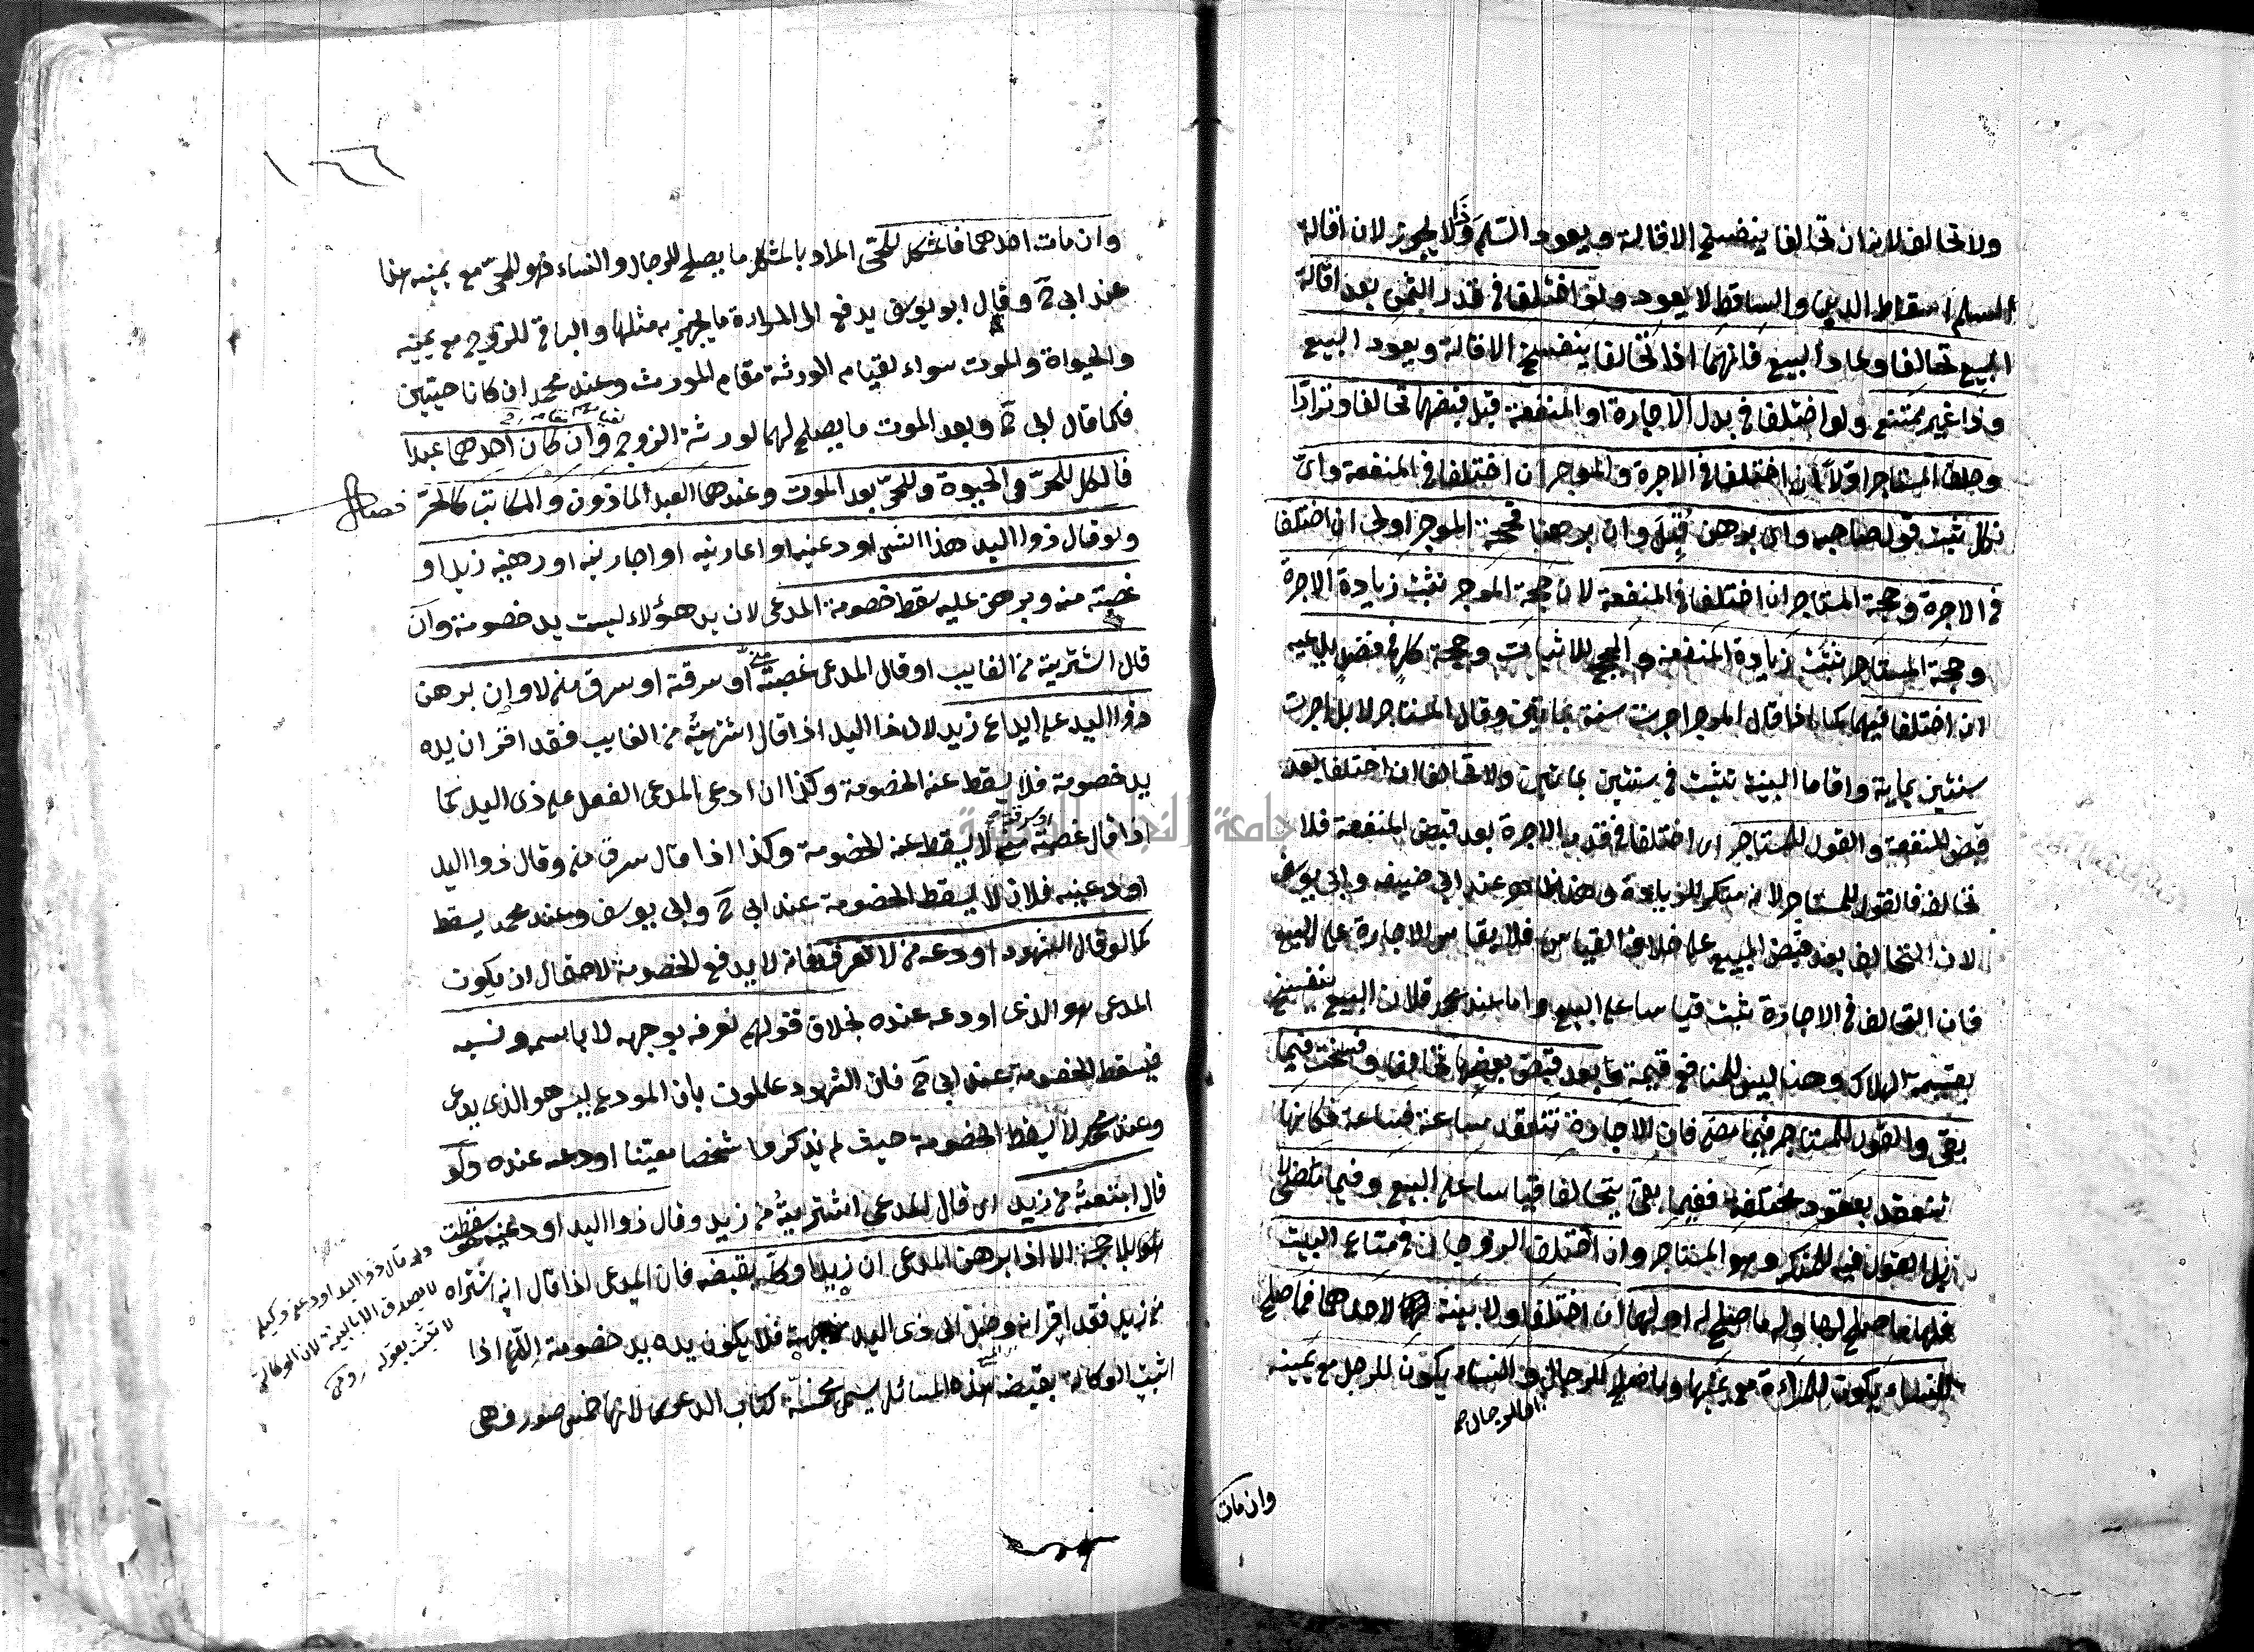 ولا تحالف لانه ان تحالفا ينفسخ الاقالة ويعود السلم وذا لا يجوز لان اقالة
السلم اسقاط الدين والساقط لا يعود ولو اختلفا في قدر الثمن بعد اقالة
البيع تحالفا وعاد البيع فانهما اذا تحالفا ينفسخ الاقالة ويعود البيع
وذا غير ممتنع ولو اختلفا في بدل الاجارة او المنفعة قبل قبضها تحالفا وترادا
وحلف المستاجر اولا ان اختلفا في الاجرة والموجر ان اختلفا في المنفعة واى
نكل ثبت قول صاحبه واى برهن قبل وان برهنا فحجة الموجر اولى ان اختلفا
في الاجرة وحجة المستاجر ان اختلفا في المنفعة لان حجة الموجر تثبت زيادة الاجرة
وحجة المستاجر تثبت زيادة المنفعة والحجج للاثبات وحجة كل في فضل يدعيه
ان اختلفا فيهما كما اذا قال الموجر اجرت سنة بمايتين وقال المستاجر لا بل اجرت
سنتين بماية واقاما البينة تثبت في سنتين بمايتين ولا تحالف ان اختلفا بعد
قبض المنفعة والقول للمستاجر اى اختلفا في قدر الاجرة بعد قبض المنفعة فلا
تحالف فالقول للمستاجر لانه منكر للزيادة وهذا ظاهر عند ابى حنيفه وابى يوسف
لان التحالف بعد قبض المبيع على خلاف القياس فلا يقاس الاجارة على البيع
فان التحالف في الاجارة ثبت قياسا على البيع واما عند محمد فلان البيع ينفسخ
بقيمة الهلاك وهنا ليس للمنافع قيمة وبعد قبض بعضها تحالفا وفسخت فيما
بقى والقول للمستاجر فيما مضى فان الاجارة تنعقد ساعة فساعة فكانها
تنعقد بعقود مختلفة ففيما بقى يتحالفا قياسا على البيع وفيما مضى لا
بل القول فيه للمنكر وهو المستاجر وان اختلف الزوجان في متاع البيت
فلها ما صلح لها وله ما صلح له او لهما ان اختلفا ولا بينة لاحدهما فما صلح
للنساء يكون للمراءة مع يمينها وما صلح للرجال والنساء يكون للرجل مع يمينه
وان مات
١٦٦
وان مات احدهما فالمشكل للحى المراد بالمشكل ما يصلح للرجال والنساء فهو للحى مع يمينه هذا
عند ابى ح وقال ابو يوسف يدفع الى المراءة ما يجهز به مثلها والباقى للزوج مع يمينه
والحيواة والموت سواء لقيام الورثة مقام المورث وعند محمد ان كانا حيين
فكما قال ابى ح وبعد الموت ما يصلح لهما لورثة الزوج وان كان احدهما عبدا
فالكل للحر في الحيوة وللحى بعد الموت وعندهما العبد الماذون والمكاتب كالحر فصل
ولو قال ذوا اليد هذا الشى اودعنيه او اعارنيه او اجارنيه او رهنيه زيد او
غصبته منه وبرهن عليه سقط خصومة المدعى لان يد هؤلاء ليست يد خصومة وان
قال اشتريته من الغايب او قال المدعى غصبته او سرقته او سرق منى لا وان برهن
ذوا اليد على ايداع زيد لان ذا اليد اذا قال اشتريته من الغايب فقد اقر ان يده
يد خصومة فلا يسقط عنه الخصومة وكذا ان ادعى المدعى الفعل على ذى اليد كما
اذا قال غصبته منى او سرقته لا يسقط عنه الخصومة وكذا اذا قال سرق منى وقال ذوا اليد
اودعنيه فلان لا يسقط الخصومة عند ابى ح وابى يوسف وعند محمد يسقط
كما لو قال الشهود اودعه من لا نعرفه فانه لا يدفع الخصومة لاحتمال ان يكون
المدعى هو الذى اودعه عنده بخلاف قولهم نعرفه بوجهه لا باسمه ونسبه
فيسقط الخصومة عند ابى ح فان الشهود علموا بان المودع ليس هو الذى يدعى
وعند محمد لا يسقط الخصومة حيث لم يذكروا شخصا معينا اودعه عنده ولو
قال ابتعته من زيد اى قال المدعى اشتريته من زيد وقال ذوا اليد اودعنيه هو سقطت
بلا حجة الا اذا برهن المدعى ان زيدا وكله بقبضه فان المدعى اذا قال انه اشتراه
من زيد فقد اقر انه وصل الى ذى اليد من جهته فلا يكون يده يد خصومة الا اذا
اثبت الوكالة بقبضه هذه المسائل يسمى مخمسة كتاب الدعوى لانها خمس صور وهى
ولو قال ذوا اليد اودعنى وكيله
لا يصدق الا بالبينة لان الوكالة
لا تثبت بقوله
جامعة النجاح الوطنية